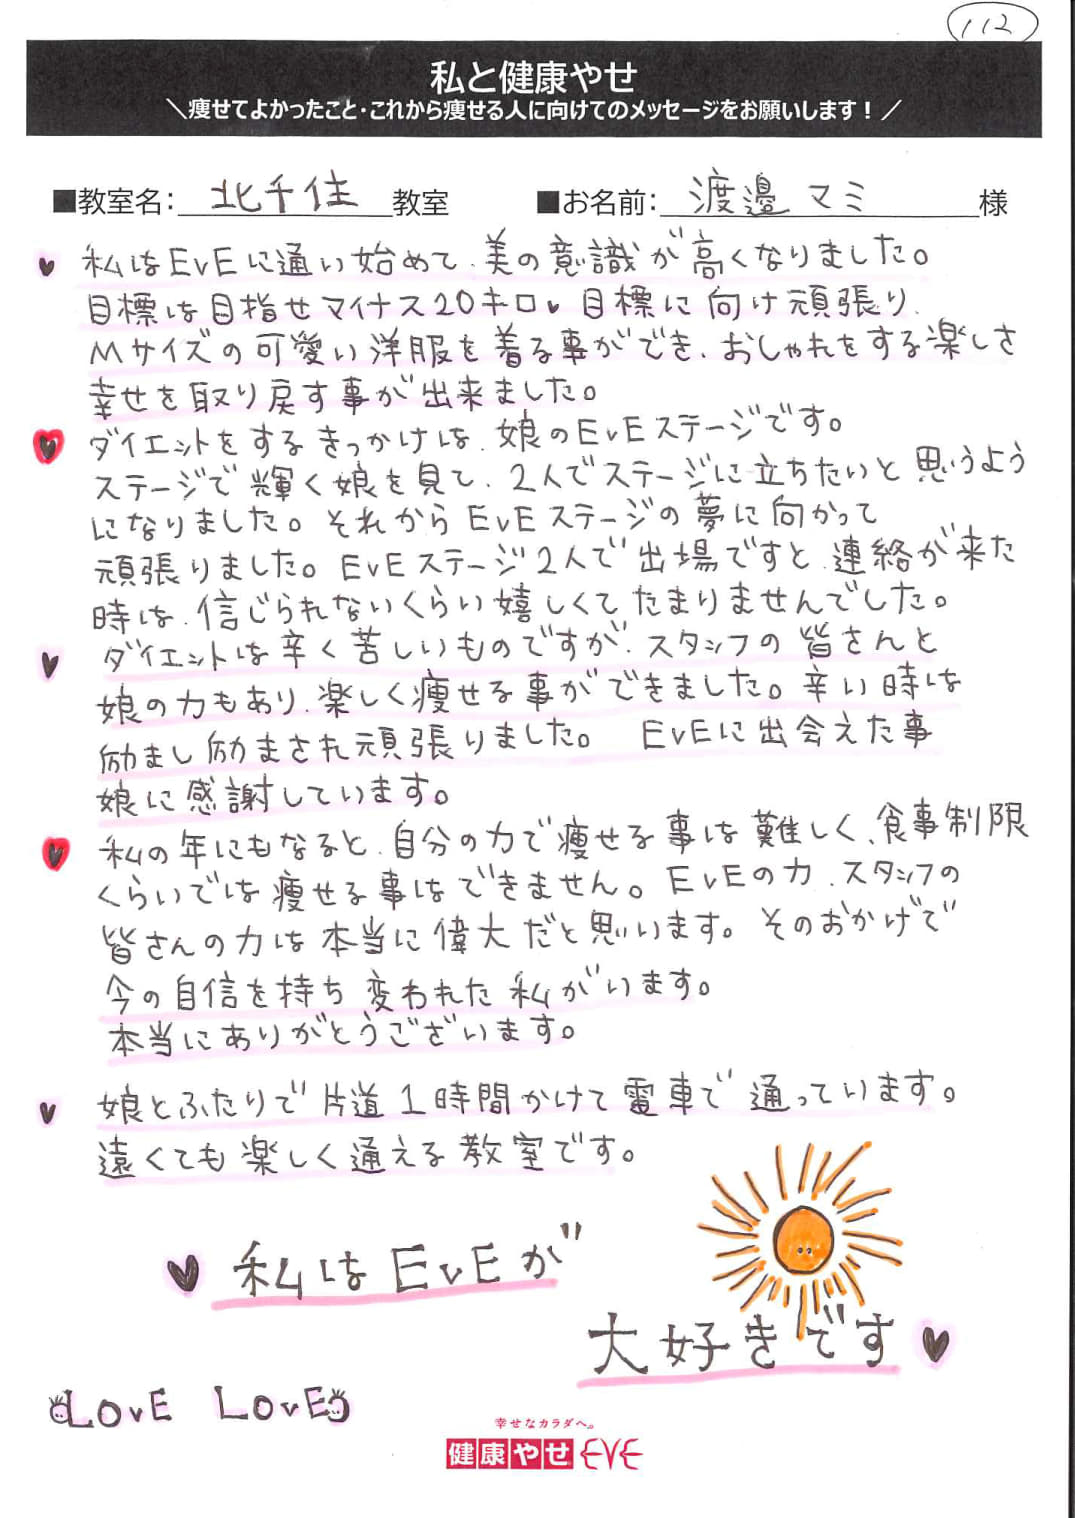 112
私と健康やせ
＼痩せてよかったこと・これから痩せる人に向けてのメッセージをお願いします！／
■教室名： 北千住 教室 ■お名前： 渡邉 マミ 様
♥ 私はEvEに通い始めて、美の意識が高くなりました。
目標は目指せマイナス20キロ♥ 目標に向け頑張り、
Mサイズの可愛い洋服を着る事ができ、おしゃれをする楽しさ
幸せを取り戻す事が出来ました。
♥ ダイエットをするきっかけは、娘のEvEステージです。
ステージで輝く娘を見て、2人でステージに立ちたいと思うよう
になりました。それからEvEステージの夢に向かって
頑張りました。EvEステージ2人で出場ですと、連絡が来た
時は、信じられないくらい嬉しくてたまりませんでした。
♥ ダイエットは辛く苦しいものですが、スタッフの皆さんと
娘の力もあり、楽しく痩せる事ができました。辛い時は
励まし励まされ頑張りました。 EvEに出会えた事
娘に感謝しています。
♥ 私の年にもなると、自分の力で痩せる事は難しく、食事制限
くらいでは痩せる事はできません。EvEの力、スタッフの
皆さんの力は本当に偉大だと思います。そのおかげで
今の自信を持ち変われた私がいます。
本当にありがとうございます。
♥ 娘とふたりで片道1時間かけて電車で通っています。
遠くても楽しく通える教室です。
♥ 私はEvEが
大好きです ♥
LOvE LOvE
幸せなカラダへ。
健康やせ EVE